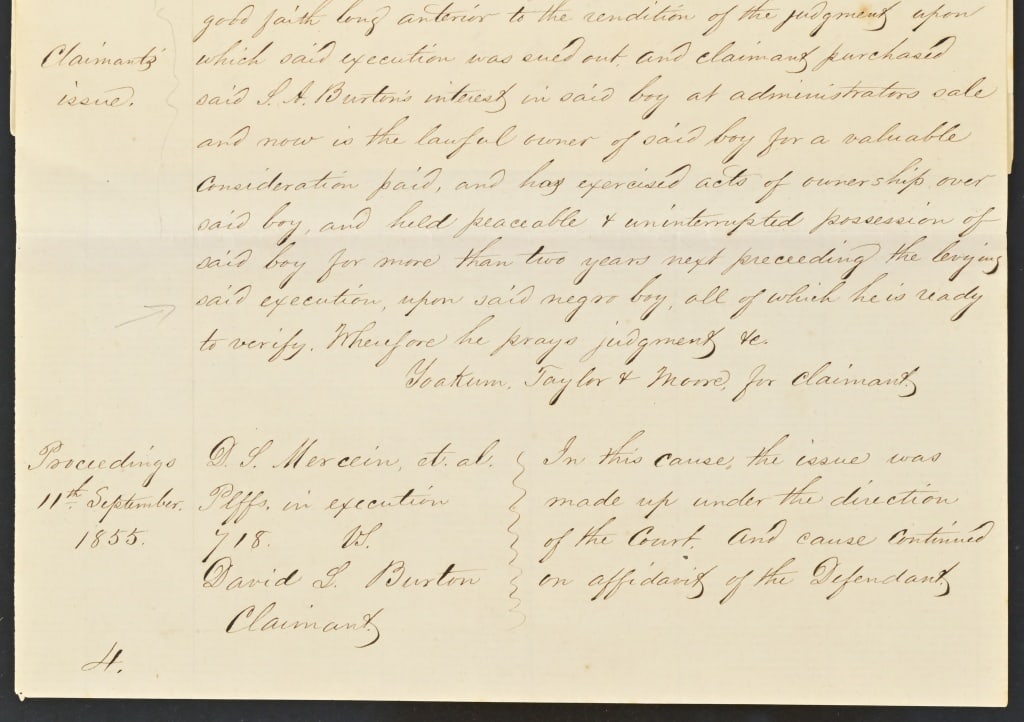 good faith long anterior to the rendition of the judgment upon
Claimants which said execution was sued out, and claimant purchased
issue. said S. A. Burton's interest in said boy at administrators sale
and now is the lawful owner of said boy for a valuable
consideration paid, and has exercised acts of ownership over
said boy, and held peaceable & uninterrupted possession of
said boy for more than two years next preceeding the levying
said execution, upon said negro boy, all of which he is ready
to verify. Wherefore he prays judgment &c.
Yoakum, Taylor & Moore, for claimant
Proceedings D. S. Mercein, et. al. In this cause, the issue was
11th September. Plffs. in execution made up under the direction
1855. 718. vs. of the Court. And cause continued
David S. Burton on affidavit of the Defendant
Claimant
4.